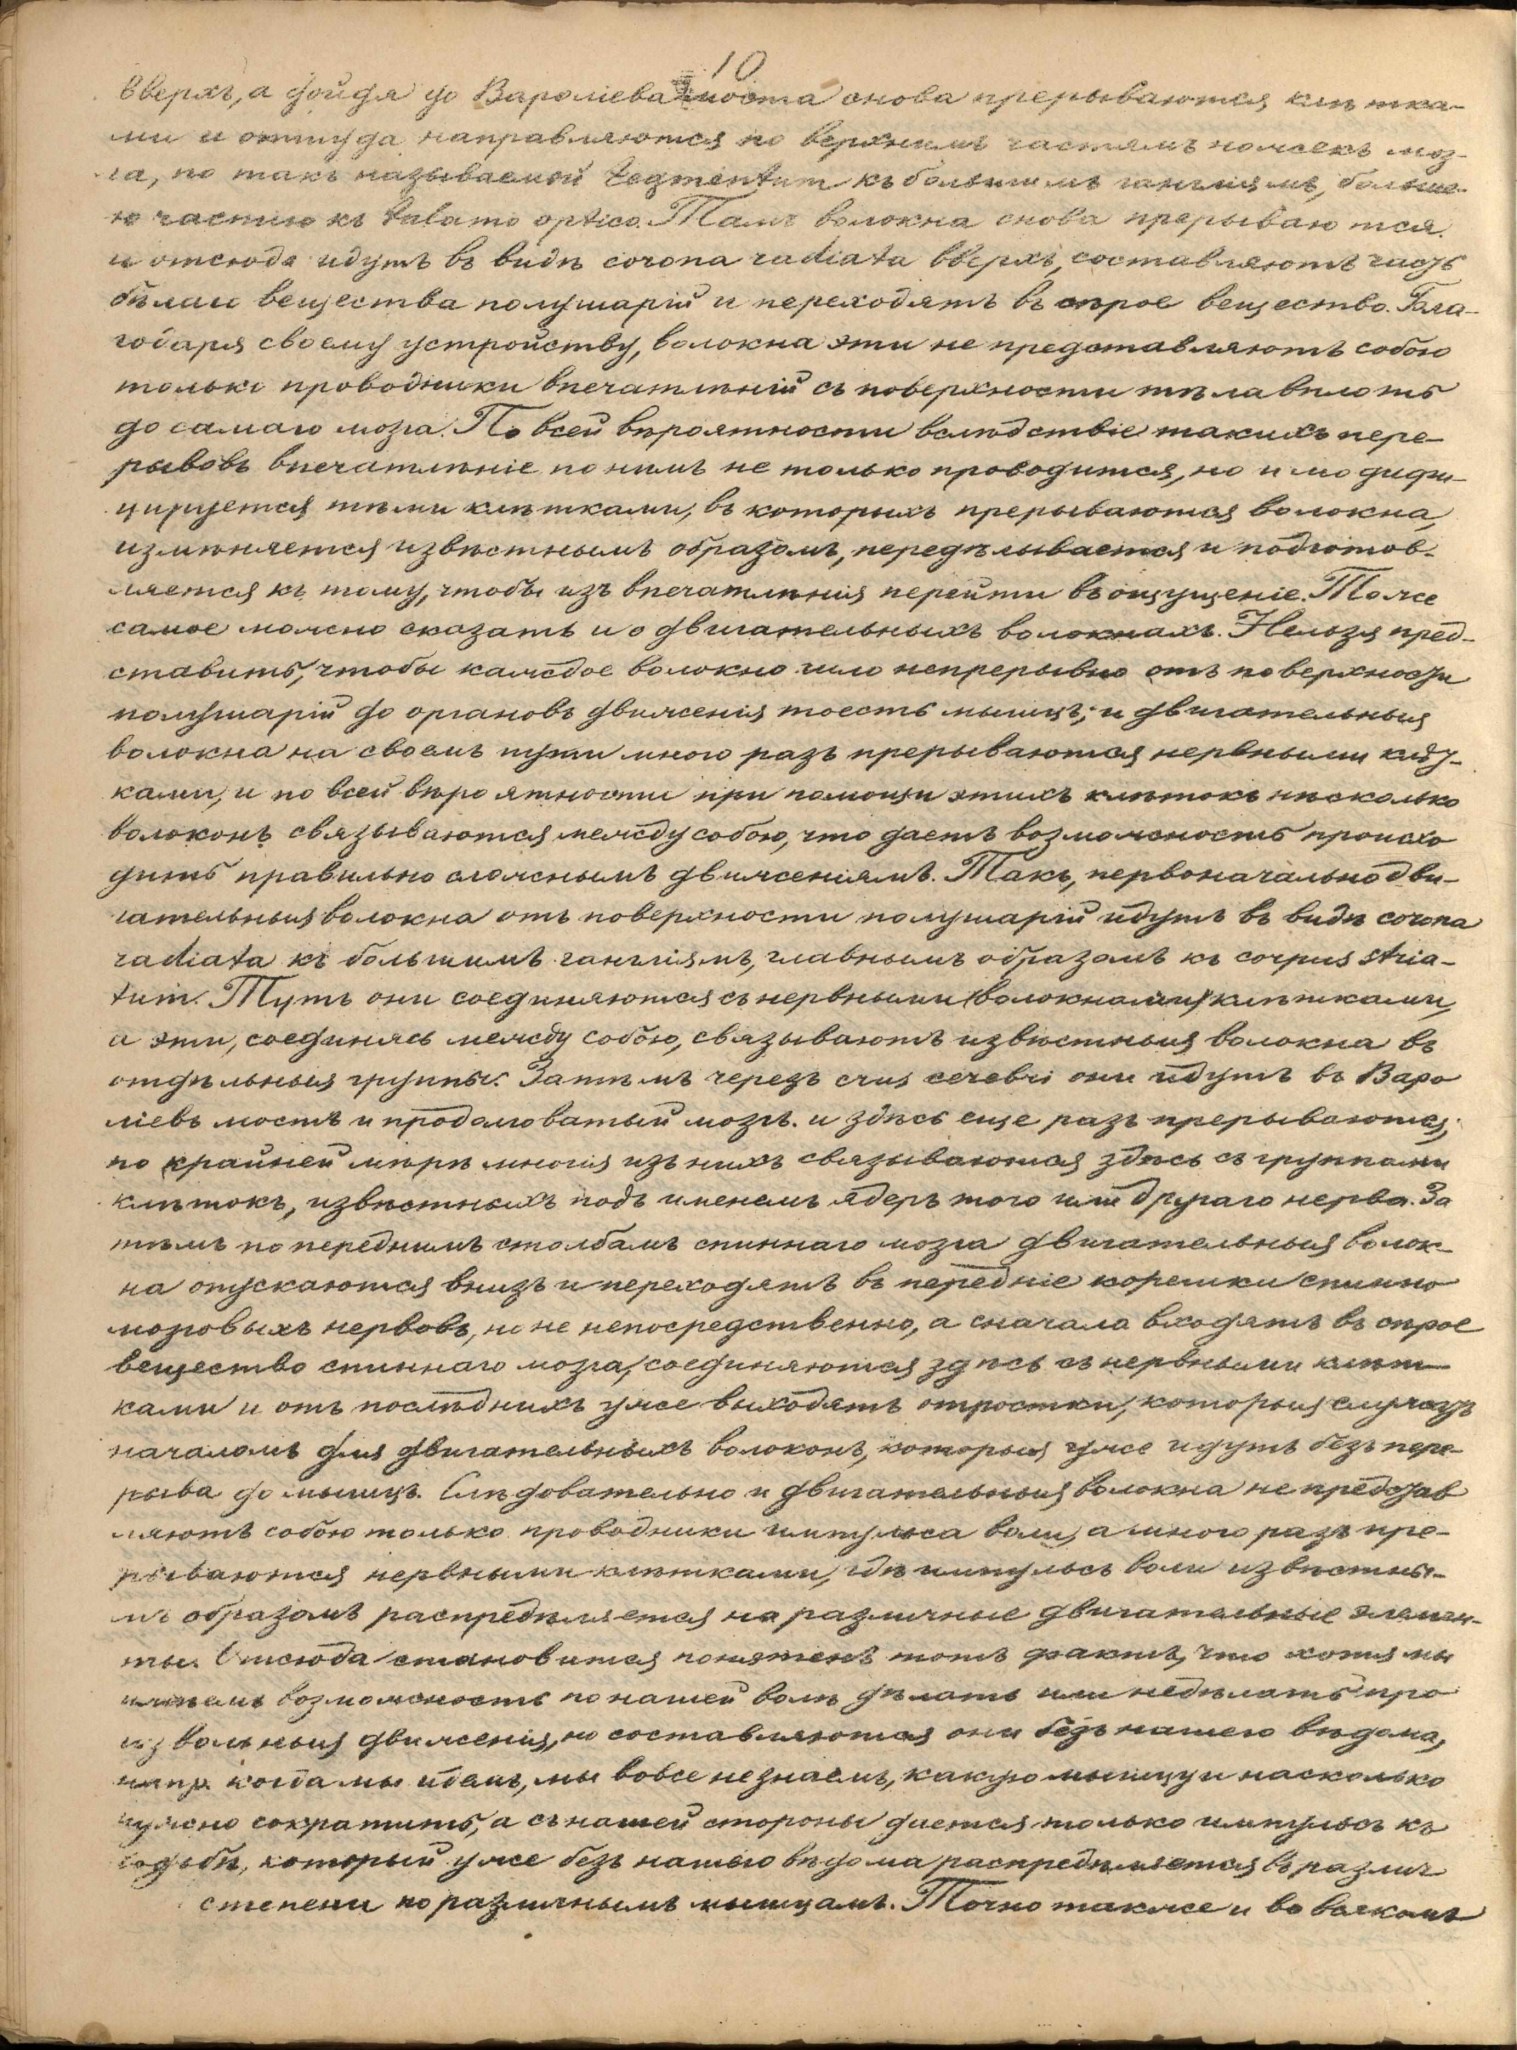 10
вверхъ, а дойдя до Вароліева моста снова прерываются клѣтка-
ми и оттуда направляются по верхнимъ частямъ ножекъ моз-
га, по такъ называемой tegmentum къ большимъ гангліямъ, больше-
ю частію къ talamo optico. Тамъ волокна снова прерываются
и отсюда идутъ въ видѣ corona radiata вверхъ, составляютъ часть
бѣлаго вещества полушарій и переходятъ въ сѣрое вещество. Бла-
годаря своему устройству, волокна эти не представляютъ собою
только проводники впечатлѣній съ поверхности тѣла вплоть
до самаго мозга. По всей вѣроятности вслѣдствіе такихъ пере-
рывовъ впечатлѣніе по нимъ не только проводится, но и модифи-
цируется тѣми клѣтками, въ которыхъ прерываются волокна,
измѣняется извѣстнымъ образомъ, передѣлывается и подготов-
ляется къ тому, чтобы изъ впечатлѣнія перейти въ ощущеніе. Тоже
самое можно сказать и о двигательныхъ волокнахъ. Нельзя пред-
ставить, чтобы каждое волокно шло непрерывно отъ поверхности
полушарій до органовъ движенія тоесть мышцъ; и двигательныя
волокна на своемъ пути много разъ прерываются нервными клѣт-
ками, и по всей вѣроятности при помощи этихъ клѣтокъ нѣсколько
волоконъ связываются между собою, что даетъ возможность происхо
дить правильно сложнымъ движеніямъ. Такъ, первоначально дви-
гательныя волокна отъ поверхности полушарій идутъ въ видѣ corona
radiata къ большимъ гангліямъ, главнымъ образомъ къ corpus stria-
tum. Тутъ они соединяются съ нервными (волокнами) клѣтками,
а эти, соединясь между собою, связываютъ извѣстныя волокна въ
отдѣльныя группы. Затѣмъ черезъ crus cerebri они идутъ въ Варо
ліевъ мостъ и продолговатый мозгъ. и здѣсь еще разъ прерываются,
по крайней мѣрѣ многія изъ нихъ связываются здѣсь съ группами
клѣтокъ, извѣстныхъ подъ именемъ ядеръ того или другаго нерва. За
тѣмъ по переднимъ столбамъ спиннаго мозга двигательныя волок-
на опускаются внизъ и переходятъ въ передніе корешки спинно
мозговыхъ нервовъ, но не непосредственно, а сначала входятъ въ сѣрое
вещество спиннаго мозга, соединяются здѣсь съ нервными клѣт-
ками и отъ послѣднихъ уже выходятъ отростки, которыя служатъ
началомъ для двигательныхъ волоконъ, которыя уже идутъ безъ пере-
рыва до мышцъ. Слѣдовательно и двигательныя волокна не представ
ляютъ собою только проводники импульса воли, а много разъ пре-
рываются нервными клѣтками, гдѣ импульсъ воли извѣстны-
мъ образомъ распредѣляется на различные двигательные элемен-
ты. Отсюда становится понятенъ тотъ фактъ, что хотя мы
имѣемъ возможность по нашей волѣ дѣлать или недѣлать про
извольныя движенія, но составляются они безъ нашего вѣдома,
напр. когда мы идемъ, мы вовсе не знаемъ, какую мышцу и насколько
нужно сократить, а съ нашей стороны дается только импульсъ къ
ходьбѣ, который уже безъ нашего вѣдома распредѣляется въ различ
степени по различнымъ мышцамъ. Точно также и во всякомъ